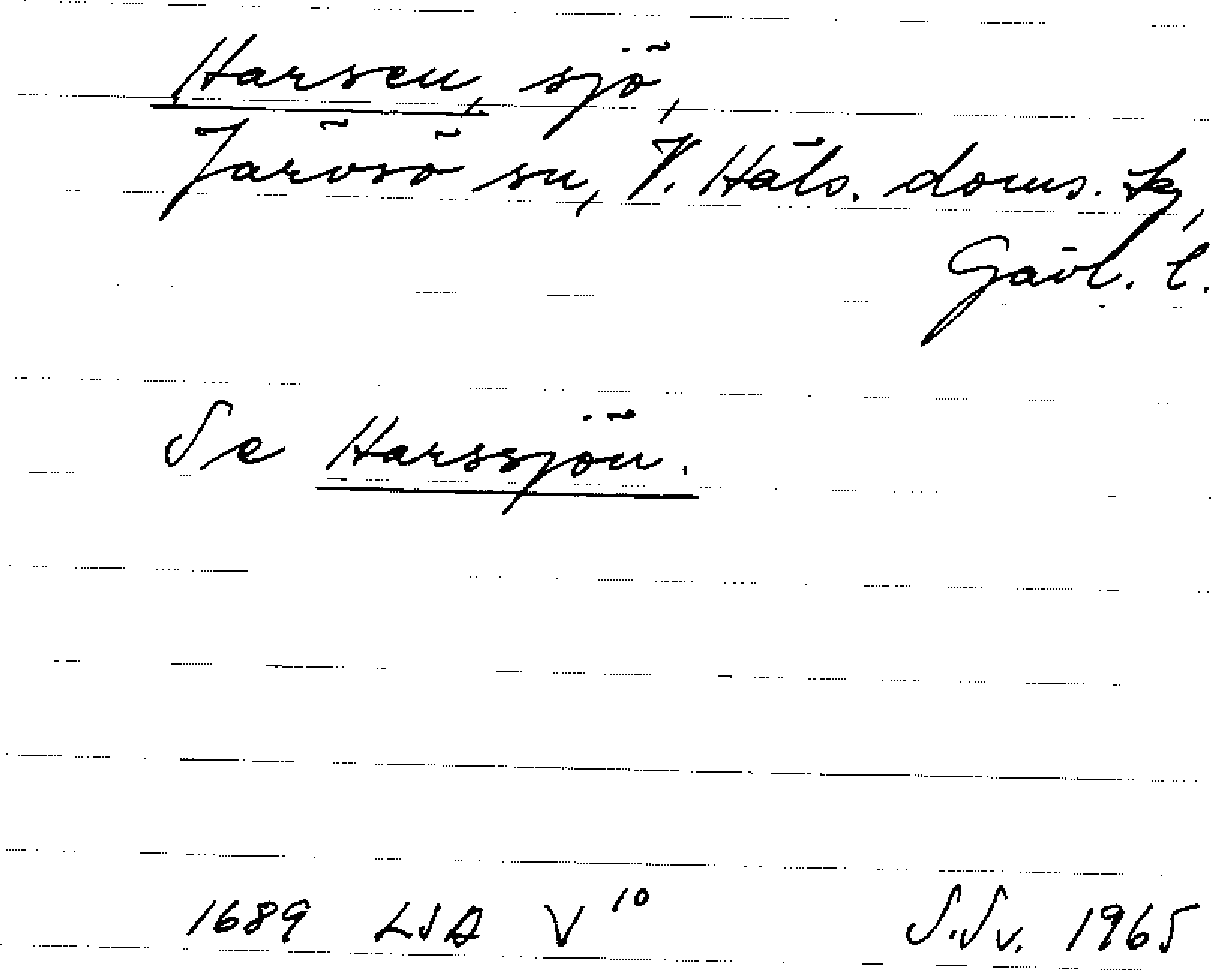 Harsen, sjö,
Järvsö sn, V. Häls. doms. tg,
Gävl. l.
Se Harssjön.
1689 LSA V 10 S.Sv. 1965